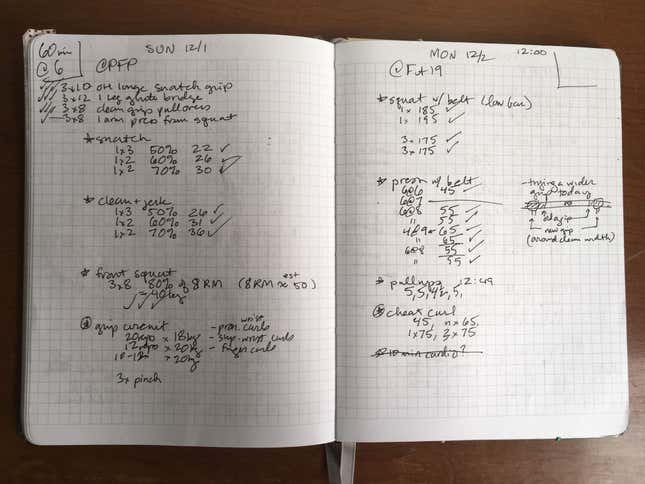 60 min
@ 6
SUN 12/1
@PFP
3x10 OH lunge snatch grip
3x12 1 leg glute bridge
3x8 clean grip pullovers
3x8 1 arm press from squat
* snatch
1x3 50% 22 ✓
1x2 60% 26 ✓
1x2 70% 30 ✓
* clean + jerk
1x3 50% 26 ✓
1x2 60% 31 ✓
1x2 70% 36 ✓
* front squat
3x8 80% of 8RM (8RM est 50)
40kg
grip circuit
20 reps x 18kg
12 reps x 20kg
x 20kg
- wrist curls
- finger curls
3x pinch
MON 12/2 12:00
@Fit19
* squat w/ belt (low bar)
1x 185 ✓
1x 195 ✓
3x 175 ✓
3x 175 ✓
* press w/ belt
6@6 45 ✓
6@7
6@8 55 ✓
" 55 ✓
4@9 65 ✓
" 65 ✓
6@8 55 ✓
" 55 ✓
- trying a wider
grip today
old grip
new grip
(around clean width)
* pullups 12:49
5, 5, 4, 5,
cheat curl
45, x 65,
1x75, 3x75
10 min cardio?